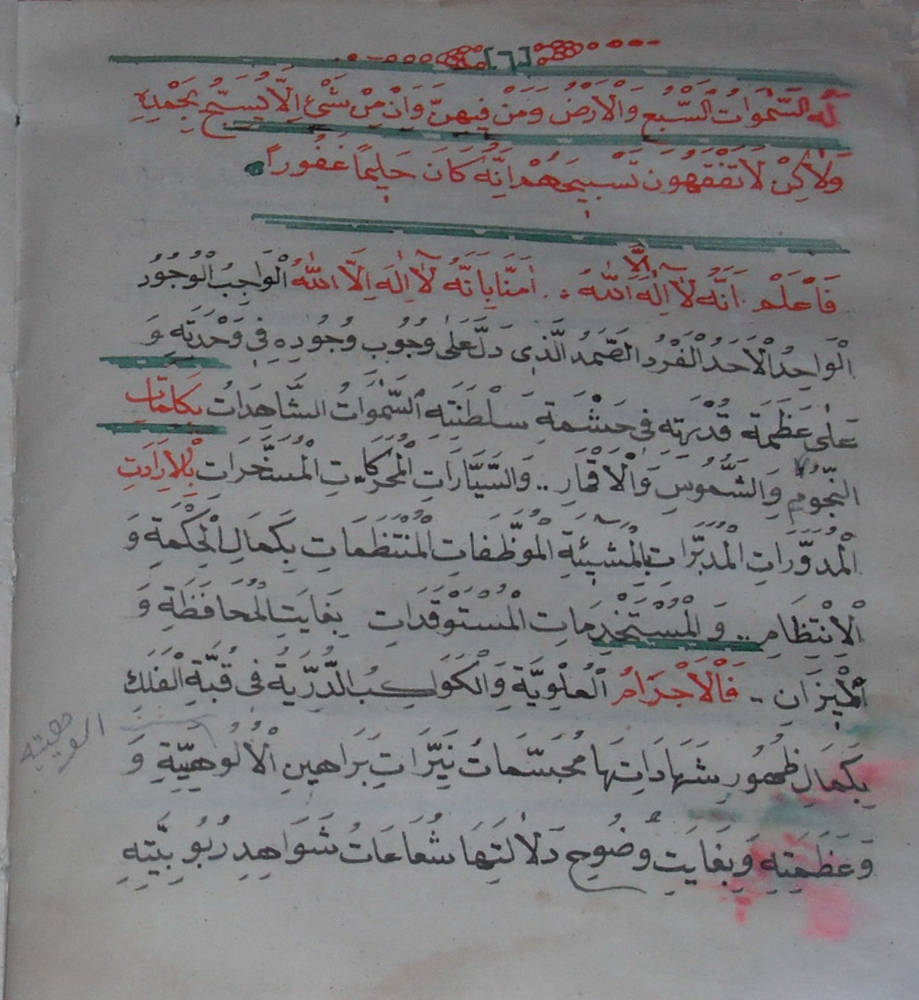 [٦]
لَهُ السَّمٰوَاتُ السَّبْعُ وَالْاَرْضُ وَمَنْ فِيهِنَّ وَاِنْ مِنْ شَيْءٍ اِلَّا يُسَبِّحُ بِحَمْدِهِ
وَلٰكِنْ لَا تَفْقَهُونَ تَسْبِيحَهُمْ اِنَّهُ كَانَ حَلِيمًا غَفُورًا
فَاعْلَمْ اَنَّهُ لَآ اِلٰهَ اِلَّا اللّٰهُ .. اٰمَنَّا بِاَنَّهُ لَآ اِلٰهَ اِلَّا اللّٰهُ الْوَاجِبُ الْوُجُودُ
الْوَاحِدُ الْاَحَدُ الْفَرْدُ الصَّمَدُ الَّذِى دَلَّ عَلٰى وُجُوبِ وُجُودِهِ فِى وَحْدَتِهِ وَ
عَلٰى عَظَمَةِ قُدْرَتِهِ فِى حَشْمَةِ سَلْطَنَتِهِ السَّمٰوَاتُ الشَّاهِدَاتُ بِكَلِمَاتِ
النُّجُومِ وَالشُّمُوسِ وَالْاَقْمَارِ .. وَالسَّيَّارَاتِ الْمُحَرَّكَاتِ الْمُسَخَّرَاتِ بِالْاِرَادَتِ
الْمُدَوَّرَاتِ الْمُدَبَّرَاتِ بِالْمَشِيْئَةِ الْمُوَظَّفَاتِ الْمُنْتَظَمَاتِ بِكَمَالِ الْحِكْمَةِ وَ
الْاِنْتِظَامِ .. وَالْمُسْتَخْدَمَاتِ الْمُسْتَوْقَدَاتِ بِغَايَتِ الْمُحَافَظَةِ وَ
الْمِيْزَانِ - فَالْاَجْرَامُ الْعُلْوِيَّةُ وَالْكَوَاكِبُ الدُّرِّيَّةُ فِى قُبَّةِ الْفَلَكِ
بِكَمَالِ ظُهُورِ شَهَادَاتِهَا مُجَسَّمَاتُ نَيِّرَاتِ بَرَاهِينِ الْاُلُوهِيَّةِ وَ
وَعَظَمَتِهِ وَبِغَايَتِ وُضُوحِ دَلَالَتِهَا شُعَاعَاتُ شَوَاهِدِ رُبُوبِيَّتِهِ